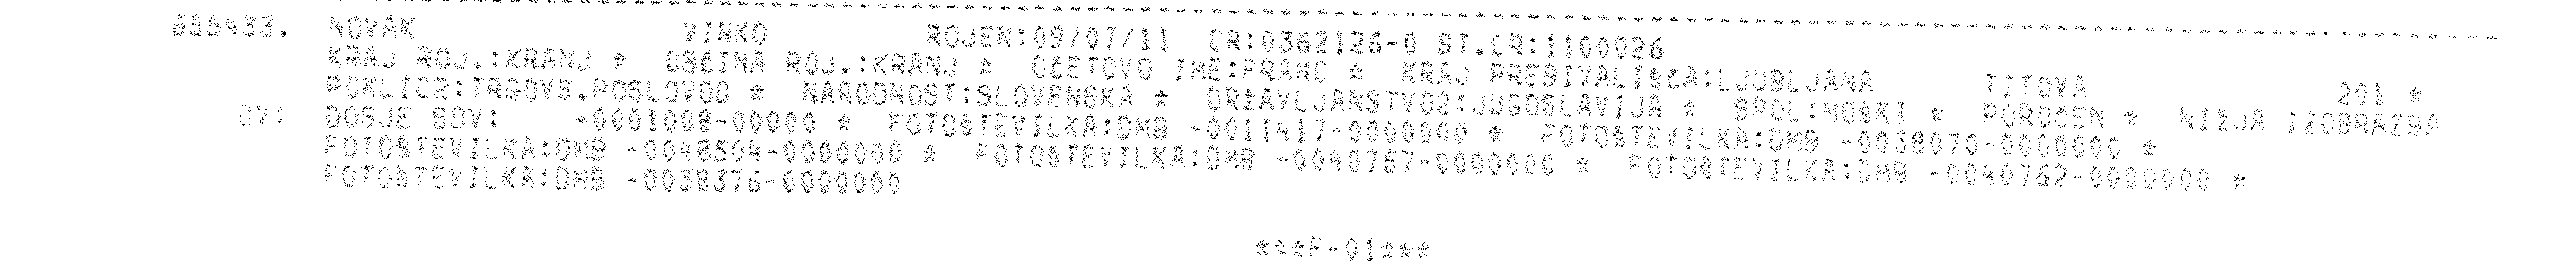 655433. NOVAK VINKO ROJEN:09/07/11 CR:0362126-0 ST.CR:1100026
KRAJ ROJ.:KRANJ * OBČINA ROJ.:KRANJ * OČETOVO IME:FRANC * KRAJ PREBIVALIŠČA:LJUBLJANA TITOVA 201 *
POKLIC2:TRGOVS.POSLOVOD * NARODNOST:SLOVENSKA * DRŽAVLJANSTVO2:JUGOSLAVIJA * SPOL:MOŠKI * POROČEN * NIŽJA IZOBRAZBA
DV: DOSJE SDV: -0001008-00000 * FOTOŠTEVILKA:DMB -0011417-0000000 * FOTOŠTEVILKA:DMB -0038070-0000000 *
FOTOŠTEVILKA:DMB -0048504-0000000 * FOTOŠTEVILKA:DMB -0040757-0000000 * FOTOŠTEVILKA:DMB -0040762-0000000 *
FOTOŠTEVILKA:DMB -0038376-0000000
***F-01***